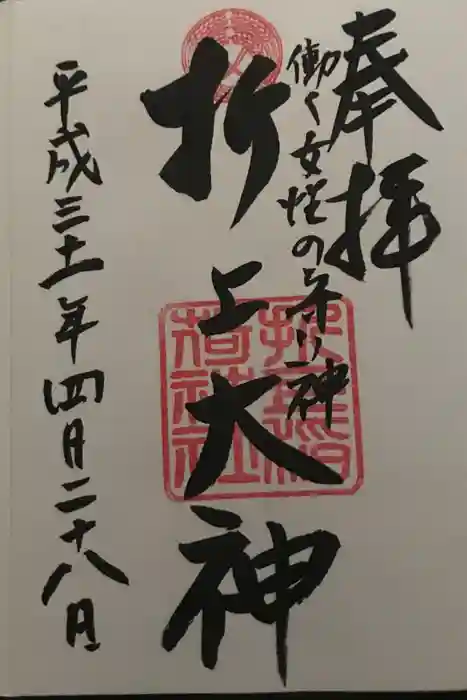 奉拝
働く女性の守り神
折上大神
平成三十一年四月二十八日